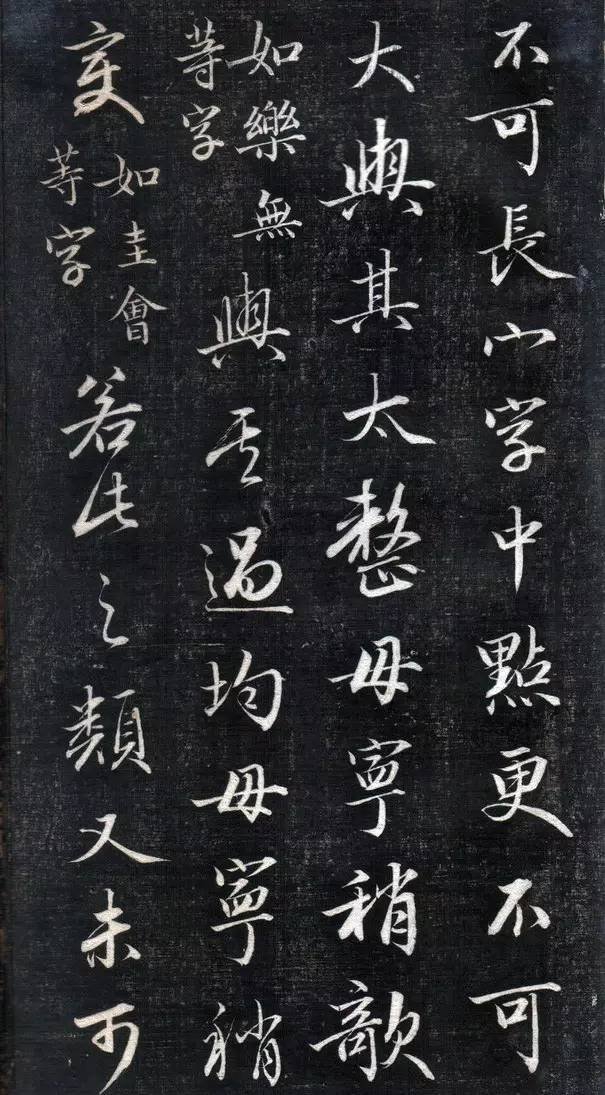 不可長宀字中點更不可
大與其太整毋寧稍欹
如樂無
等字
與其過均毋寧稍
変
如圭會
等字
若此之類又未可